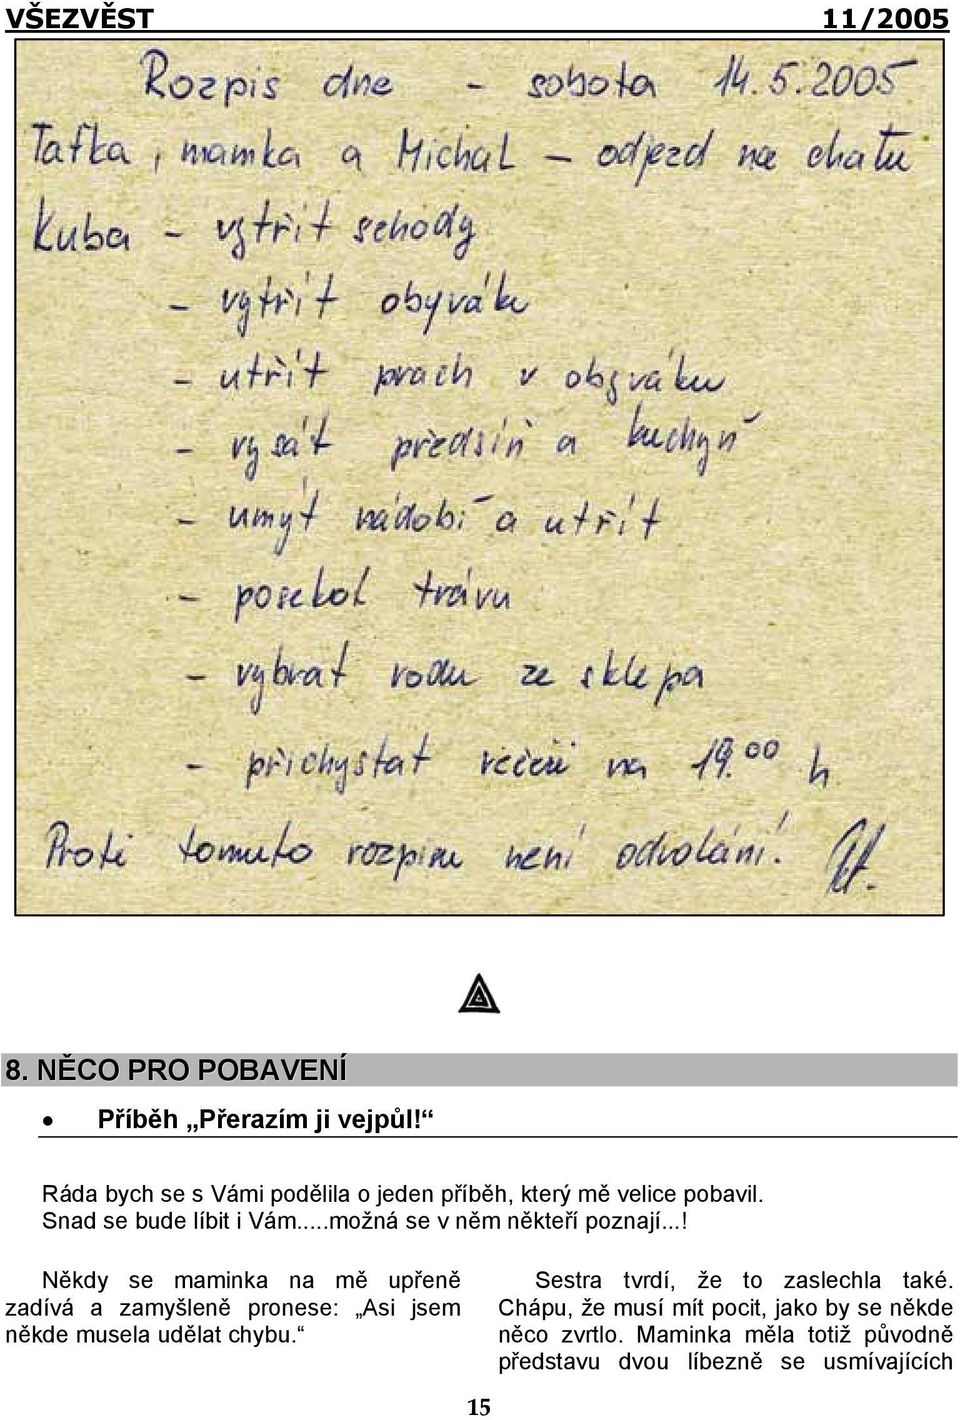 VŠEZVĚST 11/2005
Rozpis dne - sobota 14.5.2005
Taťka, mamka a Michal - odjezd na chatu
Kuba - vytřít schody
- vytřít obyvák
- utřít prach v obyváku
- vysát předsíň a kuchyň
- umýt nádobí a utřít
- posekat trávu
- vybrat vodu ze sklepa
- přichystat večeři na 19.00 h
Proti tomuto rozpisu není odvolání!
8. NĚCO PRO POBAVENÍ
• Příběh „Přerazím ji vejpůl!“
Ráda bych se s Vámi podělila o jeden příběh, který mě velice pobavil.
Snad se bude líbit i Vám...možná se v něm někteří poznají...!
Někdy se maminka na mě upřeně
zadívá a zamyšleně pronese: „Asi jsem
někde musela udělat chybu.“
Sestra tvrdí, že to zaslechla také.
Chápu, že musí mít pocit, jako by se někde
něco zvrtlo. Maminka měla totiž původně
představu dvou líbezně se usmívajících
15